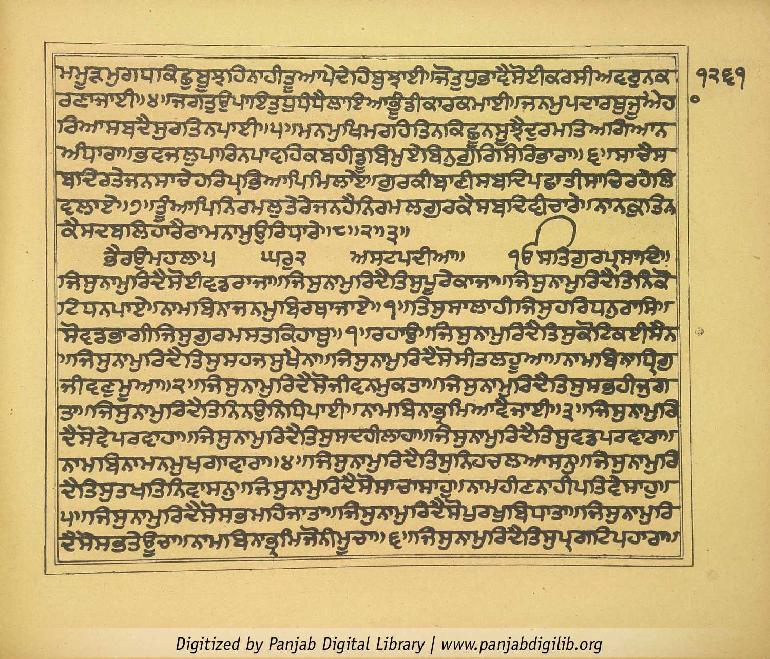 ਮਮੂੜਮੁਗਧਾਕਿਛੂਬੂਝਹਿਨਾਹੀਤੂਆਪੇਦੇਹਿਬੁਝਾਈ॥ਜੋਤੁਧੁਭਾਵੈਸੋਈਕਰਸੀਅਵਰੁਨਕ
ਰਣਾਜਾਈ॥੪॥ਜਗਤੁਉਪਾਇਤੁਧੁਧੰਧੈਲਾਇਆਭੂੰਡੀਕਾਰਕਮਾਈ॥ਜਨਮੁਪਦਾਰਥੁਜੂਐਹਾ
ਰਿਆਸਬਦੈਸੁਰਤਿਨਪਾਈ॥੫॥ਮਨਮੁਖਿਮਰਹਿਤਿਨਕਿਛੂਨਸੂਝੈਦੁਰਮਤਿਅਗਿਆਨ
ਅੰਧਾਰਾ॥ਭਵਜਲੁਪਾਰਿਨਪਾਵਹਿਕਬਹੀਡੂਬਿਮੁਏਬਿਨੁਗੁਰਸਿਰਿਭਾਰਾ॥੬॥ਸਾਚੈਸ
ਬਦਿਰਤੇਜਨਸਾਚੇਹਰਿਪ੍ਰਭਿਆਪਿਮਿਲਾਏ॥ਗੁਰਕੀਬਾਣੀਸਬਦਿਪਛਾਤੀਸਾਚਿਰਹੇਲਿ
ਵਲਾਏ॥੭॥ਤੂੰਆਪਿਨਿਰਮਲੁਤੇਰੇਜਨਹੈਨਿਰਮਲਗੁਰਕੈਸਬਦਿਵੀਚਾਰੇ॥ਨਾਨਕੁਤਿਨ
ਕੈਸਦਬਲਿਹਾਰੈਰਾਮਨਾਮੁਉਰਿਧਾਰੇ॥੮॥੨॥੩॥
ਭੈਰਉਮਹਲਾ੫ ਘਰੁ੨ ਅਸਟਪਦੀਆ॥ ੴਸਤਿਗੁਰਪ੍ਰਸਾਦਿ॥
ਜਿਸੁਨਾਮੁਰਿਦੈਸੋਈਵਡਰਾਜਾ॥ਜਿਸੁਨਾਮੁਰਿਦੈਤਿਸੁਪੂਰੇਕਾਜਾ॥ਜਿਸੁਨਾਮੁਰਿਦੈਤਿਨਿਕੋ
ਟਿਧਨਪਾਏ॥ਨਾਮਬਿਨਾਜਨਮੁਬਿਰਥਾਜਾਏ॥੧॥ਤਿਸੁਸਾਲਾਹੀਜਿਸੁਹਰਿਧਨੁਰਾਸਿ॥
ਸੋਵਡਭਾਗੀਜਿਸੁਗੁਰਮਸਤਕਿਹਾਥੁ॥੧॥ਰਹਾਉ॥ਜਿਸੁਨਾਮੁਰਿਦੈਤਿਸੁਕੋਟਕਈਸੈਨਾ
॥ਜਿਸੁਨਾਮੁਰਿਦੈਤਿਸੁਸਹਜਸੁਖੈਨਾ॥ਜਿਸੁਨਾਮੁਰਿਦੈਸੋਸੀਤਲੁਹੂਆ॥ਨਾਮਬਿਨਾਧ੍ਰਿਗੁ
ਜੀਵਣੁਮੂਆ॥੨॥ਜਿਸੁਨਾਮੁਰਿਦੈਸੋਜੀਵਨਮੁਕਤਾ॥ਜਿਸੁਨਾਮੁਰਿਦੈਤਿਸੁਸਭਹੀਜੁਗ
ਤਾ॥ਜਿਸੁਨਾਮੁਰਿਦੈਤਿਨਿਨਉਨਿਧਿਪਾਈ॥ਨਾਮਬਿਨਾਭ੍ਰਮਿਆਵੈਜਾਈ॥੩॥ਜਿਸੁਨਾਮੁਰਿ
ਦੈਸੋਵੇਪਰਵਾਹਾ॥ਜਿਸੁਨਾਮੁਰਿਦੈਤਿਸੁਸਦਹੀਲਾਹਾ॥ਜਿਸੁਨਾਮੁਰਿਦੈਤਿਸੁਵਡਪਰਵਾਰਾ॥
ਨਾਮਬਿਨਾਮਨਮੁਖਗਾਵਾਰਾ॥੪॥ਜਿਸੁਨਾਮੁਰਿਦੈਤਿਸੁਨਿਹਚਲਆਸਨੁ॥ਜਿਸੁਨਾਮੁਰਿ
ਦੈਤਿਸੁਤਖਤਿਨਿਵਾਸਨੁ॥ਜਿਸੁਨਾਮੁਰਿਦੈਸੋਸਾਚਾਸਾਹੁ॥ਨਾਮਹੀਣਨਾਹੀਪਤਿਵੇਸਾਹੁ॥
੫॥ਜਿਸੁਨਾਮੁਰਿਦੈਸੋਸਭਮਹਿਜਾਤਾ॥ਜਿਸੁਨਾਮੁਰਿਦੈਸੋਪੁਰਖੁਬਿਧਾਤਾ॥ਜਿਸੁਨਾਮੁਰਿ
ਦੈਸੋਸਭਤੇਊਚਾ॥ਨਾਮਬਿਨਾਭ੍ਰਮਿਜੋਨੀਮੂਚਾ॥੬॥ਜਿਸੁਨਾਮੁਰਿਦੈਤਿਸੁਪ੍ਰਗਟਿਪਹਾਰਾ॥
੧੨੬੧
Digitized by Panjab Digital Library | www.panjabdigilib.org